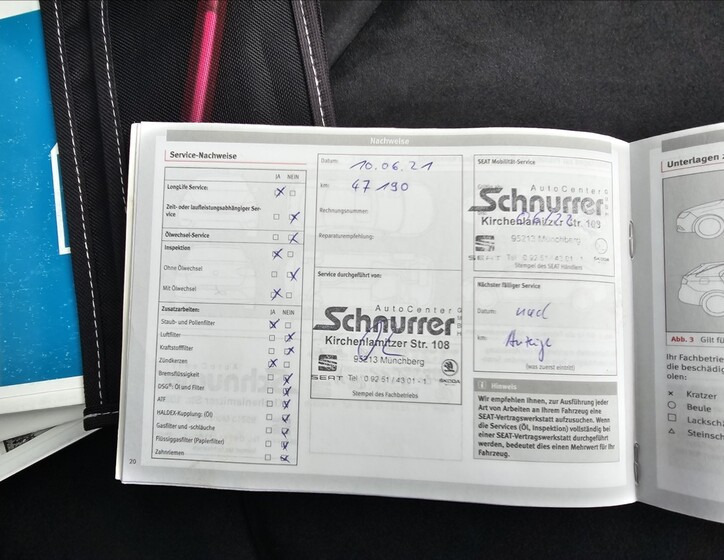 Nachweise
Service-Nachweise
JA NEIN
LongLife Service:
Zeit- oder laufleistungsabhängiger Ser-
vice
Ölwechsel-Service
Inspektion
Ohne Ölwechsel
Mit Ölwechsel
Zusatzarbeiten: JA NEIN
Staub- und Pollenfilter
Luftfilter
Kraftstofffilter
Zündkerzen
Bremsflüssigkeit
DSG®: Öl und Filter
ATF
HALDEX-Kupplung: (Öl)
Gasfilter und -schläuche
Flüssiggasfilter (Papierfilter)
Zahnriemen
20
Datum: 10.06.21
km: 47 190
Rechnungsnummer:
Reparaturempfehlung:
Service durchgeführt von:
AutoCenter
Schnurrer
Kirchenlamitzer Str. 108
95213 Münchberg
SEAT Tel. 0 92 51 / 43 01 -1 SKODA
Stempel des Fachbetriebs
SEAT Mobilitäts-Service
AutoCenter
Schnurrer
Kirchenlamitzer Str. 108
06/22
95213 Münchberg
SEAT Tel. 0 92 51 / 43 01 -1
Stempel des SEAT Händlers
Nächster fälliger Service
Datum: nach
km: Anzeige
(was zuerst eintritt)
i Hinweis
Wir empfehlen Ihnen, zur Ausführung jeder
Art von Arbeiten an Ihrem Fahrzeug eine
SEAT-Vertragswerkstatt aufzusuchen. Wenn
die Services (Öl, Inspektion) vollständig bei
einer SEAT-Vertragswerkstatt durchgeführt
werden, bedeutet dies einen Mehrwert für Ihr
Fahrzeug.
Unterlagen
Abb. 3 Gilt
Ihr Fachbetrie
die beschädig
olen:
× Kratzer
○ Beule
□ Lackschä
△ Steinsch